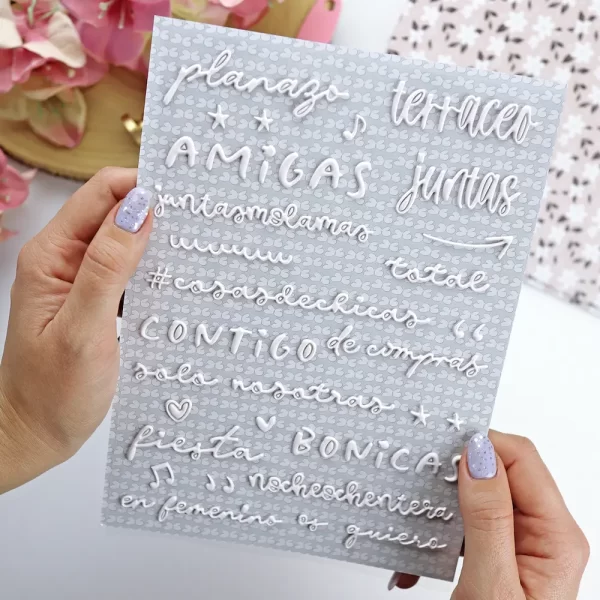 planazo terraceo
AMiGAS juntas
juntasmolamas
total
#cosasdechicas
CONTiGO de compras
solo nosotras
fiesta BONiCAS
nocheochentera
en femenino os quiero